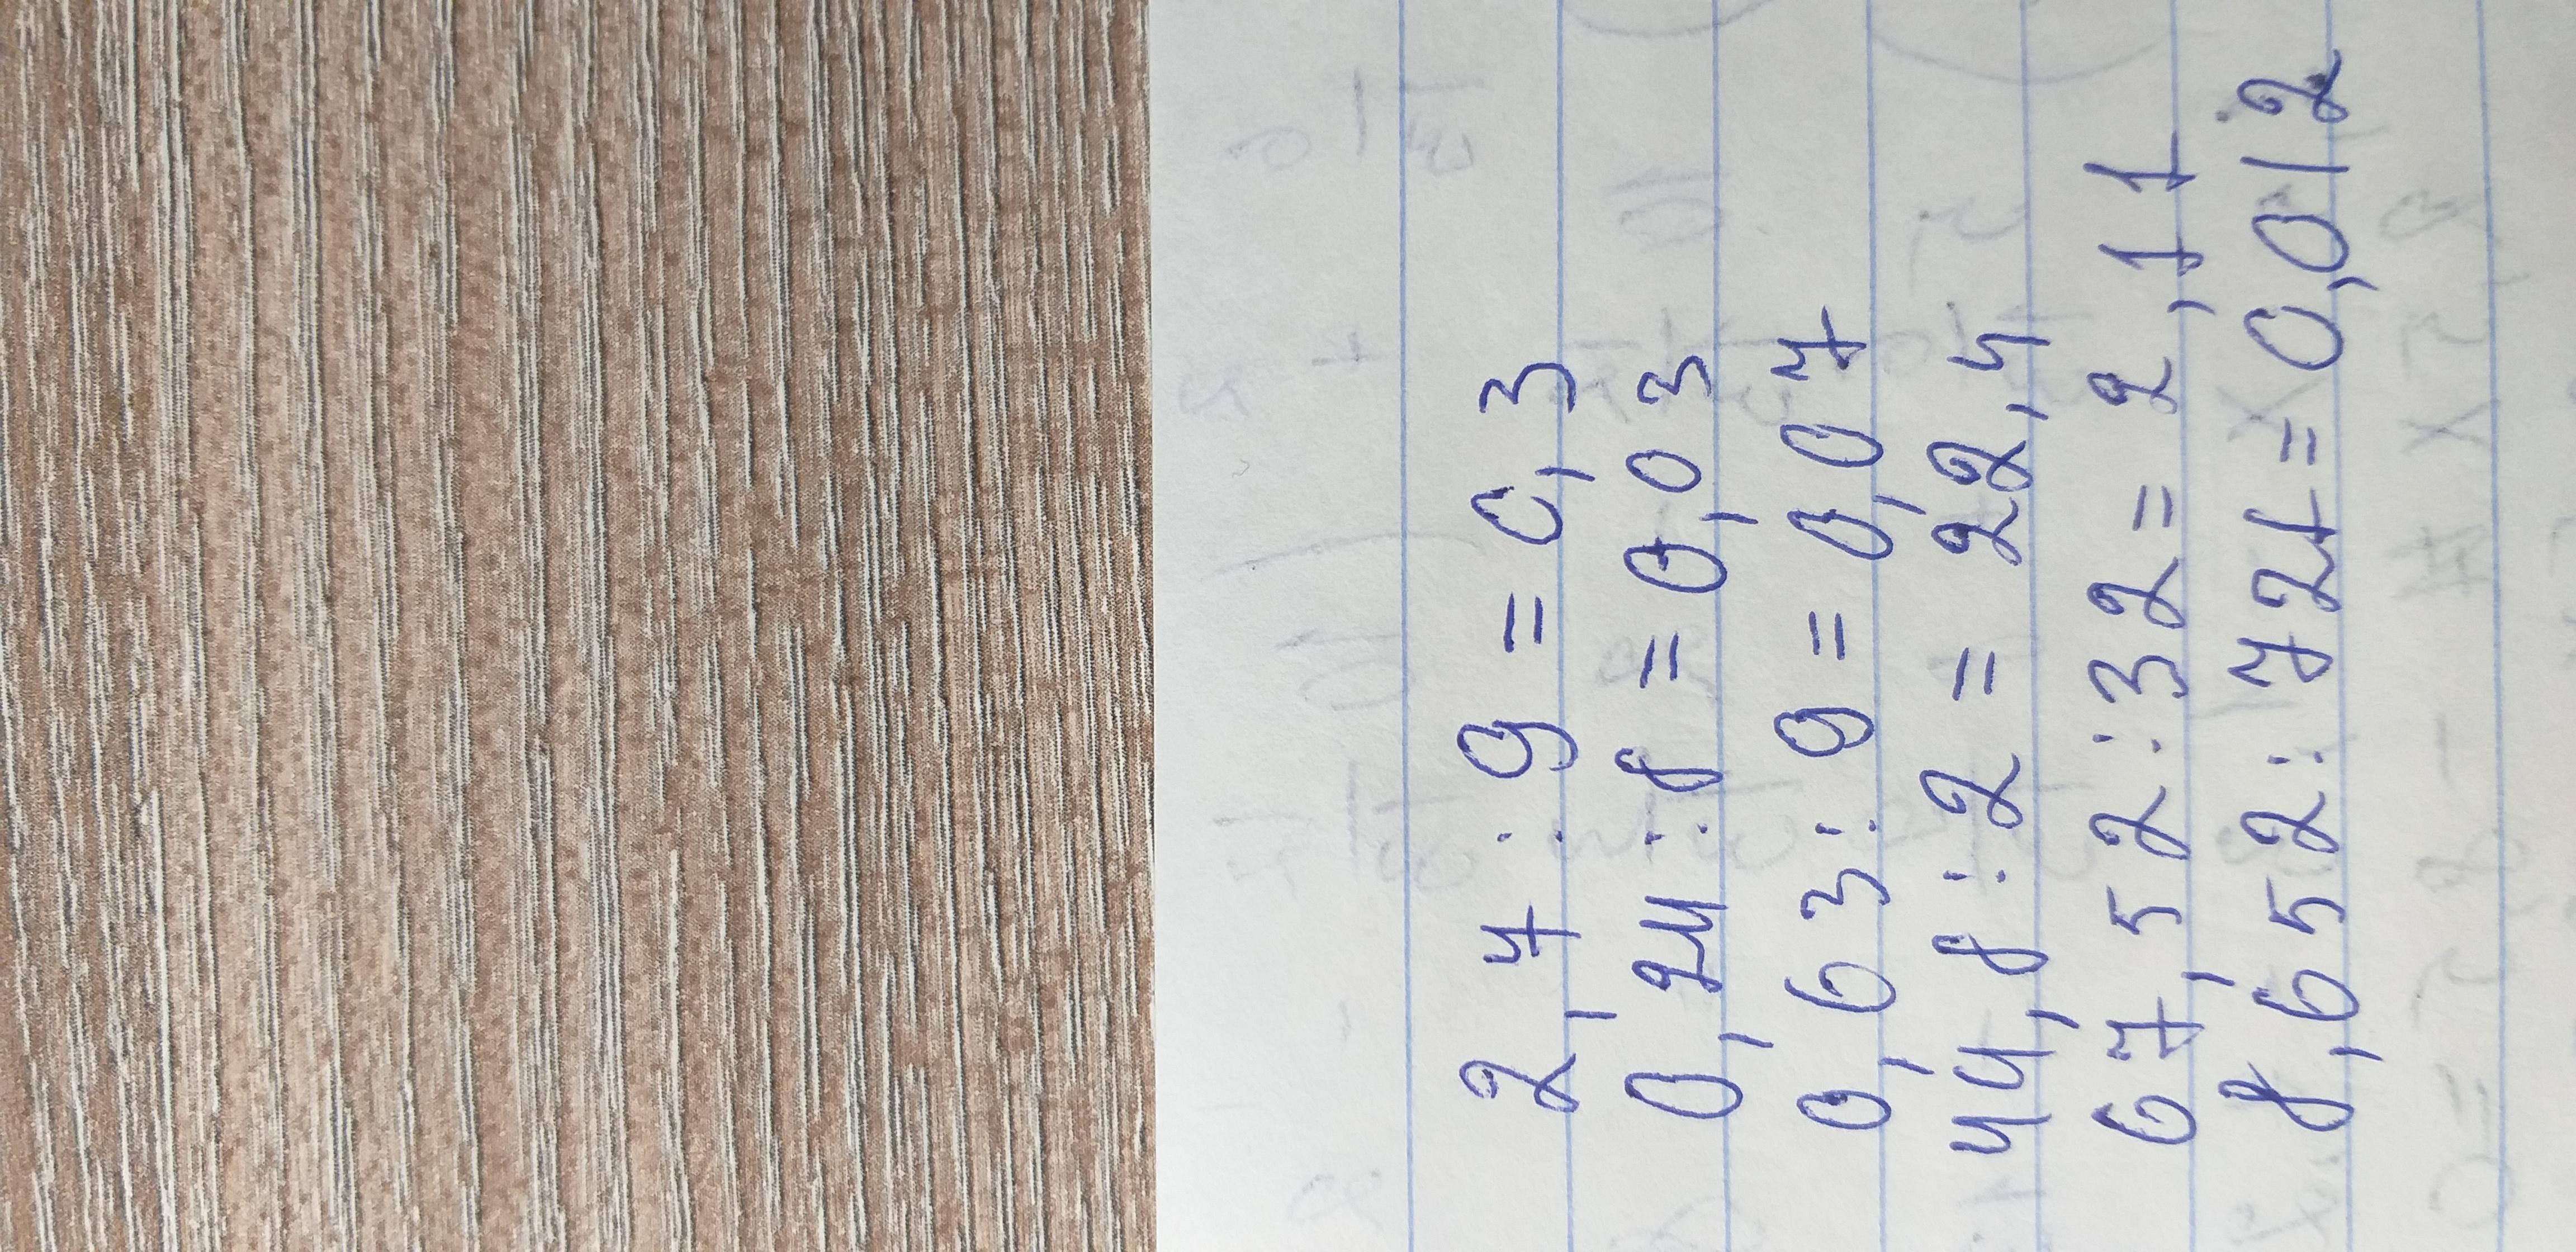 2,7 : 9 = 0,3
0,24 : 8 = 0,03
0,63 : 9 = 0,07
44,8 : 2 = 22,4
67,52 : 32 = 2,11
8,652 : 721 = 0,012